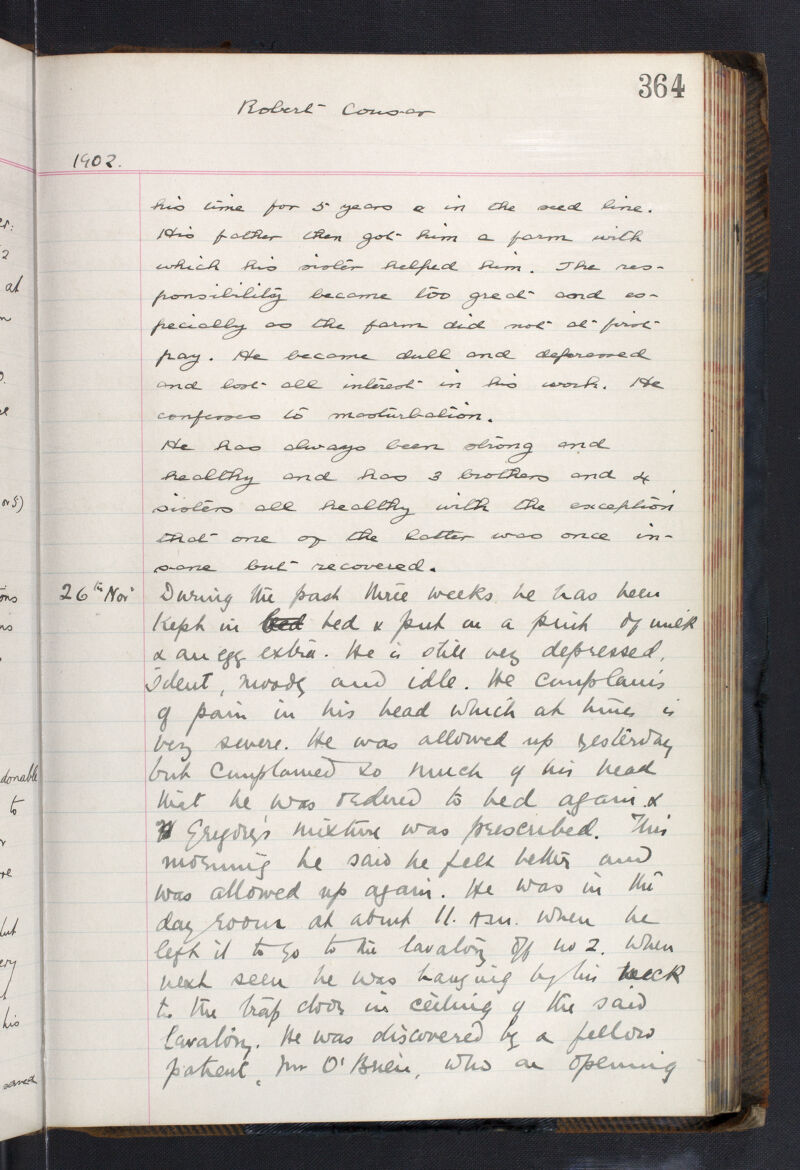 364
Robert Cousar
1902.
his time for 5 years & in the seed line.
His father then got him a farm with
which his sister helped him. The res-
ponsibility became too great and es-
pecially as the farm did not at first
pay. He became dull and depressed
and lost all interest in his work. He
confesses to masturbation.
He has always been strong and
healthy and has 3 brothers and 4
sisters all healthy with the exception
that one of the latter was once in-
sane but recovered.
26th Nov During the past three weeks he has been
kept in bed bed & put on a pint of milk
& an egg extra. He is still very depressed,
silent, moody and idle. He complains
of pain in his head which at times is
very severe. He was allowed up yesterday
but complained so much of his head
that he was ordered to bed again &
Gregory's mixture was prescribed. This
morning he said he felt better and
was allowed up again. He was in the
day room at about 11. A.M. when he
left it to go to the lavatory off no 2. When
next seen he was hanging by his neck
to the trap door in ceiling of the said
lavatory. He was discovered by a fellow
patient, Mr O'Brien, who on opening
er:
2
at
n
ons
donable
to
re
but
ery
his
saved